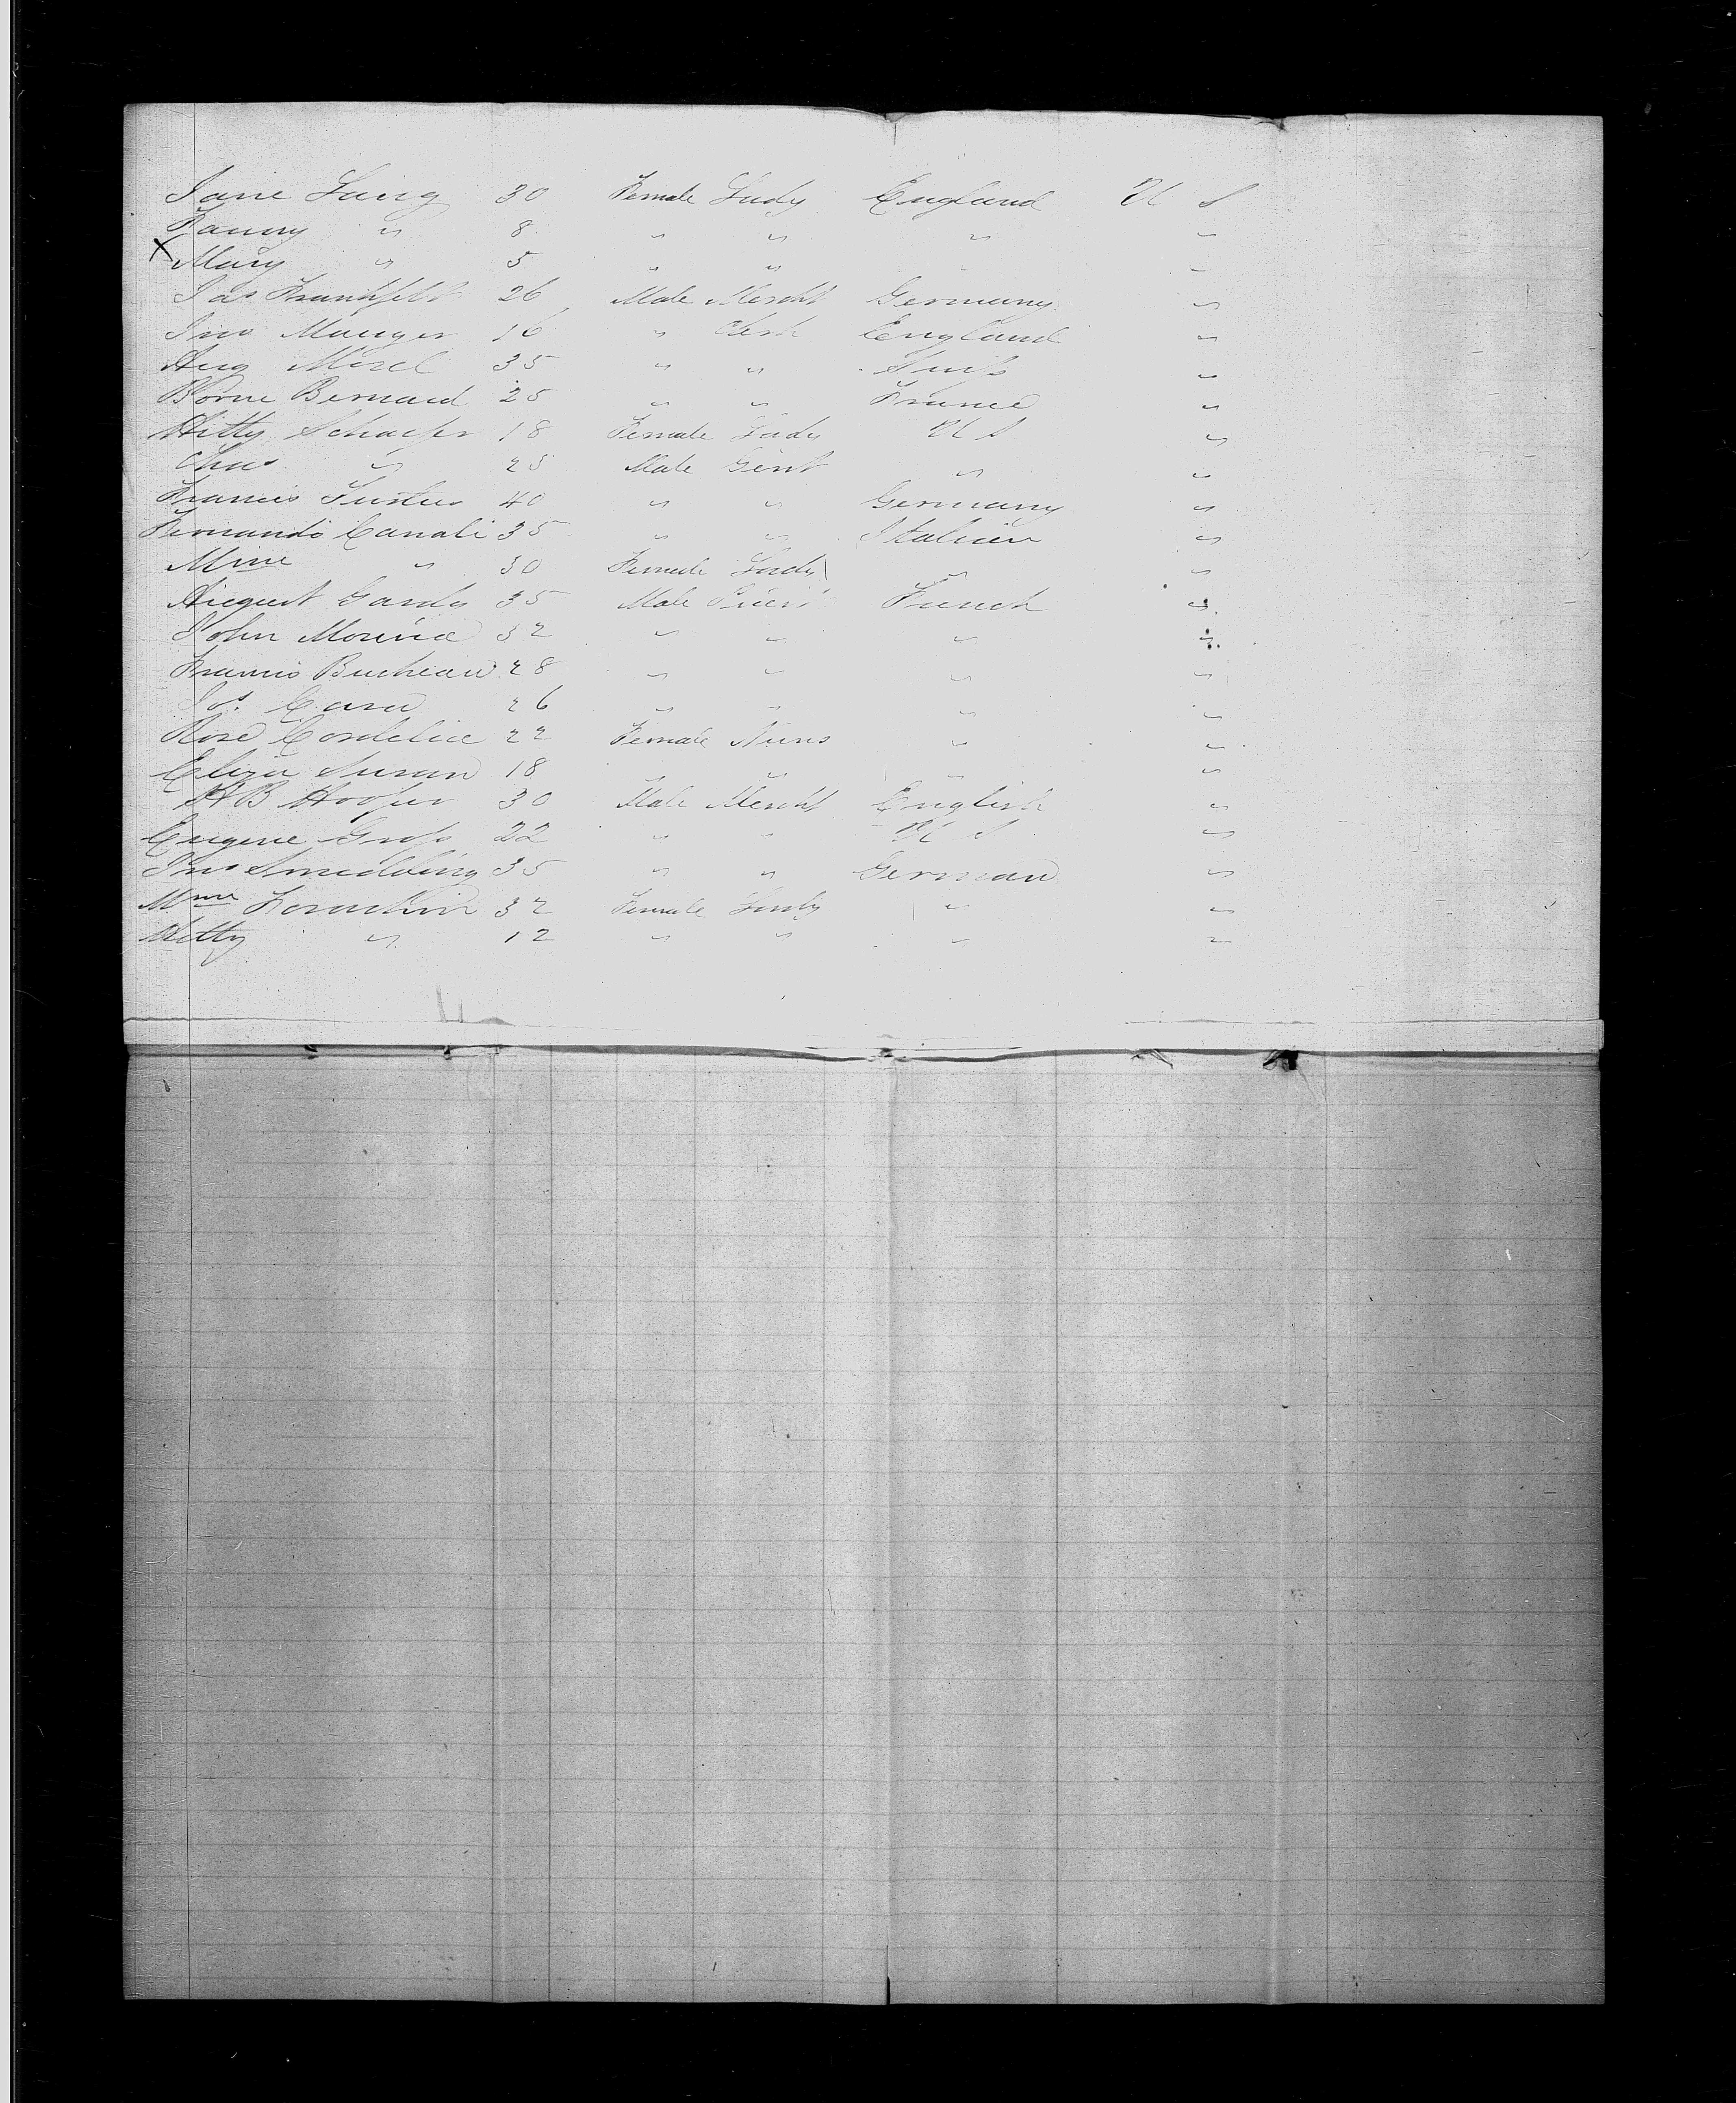 Jane Laing 30 Female Lady England U S
Fanny " 8 " " " "
x Mary " 5 " " "
Jas 26 Male Mercht Germany "
Jno Mauger 16 " Clerk England "
Aug Morel 35 " " Suis "
Borne Bernard 25 " " France "
Hitty Schaefer 18 Female Lady U S "
Chas " 25 Male Gent " "
Francis Justus 40 " " Germany "
Fernando Canali 35 " " Italien "
Mme " 30 Female Lady " "
August Gardy 35 Male Priest French "
John 32 " " " "
Francis Bucheau 28 " " " "
Jos. 26 " " " "
Rose Cordelia 22 Female Nuns " "
Eliza Susan 18 " " "
H B Hooper 30 Male Mercht English "
Eugene Gross 22 " " U S "
Jno Smedding 35 " " German "
Mme 32 Female Lady " "
Hitty " 12 " " " "